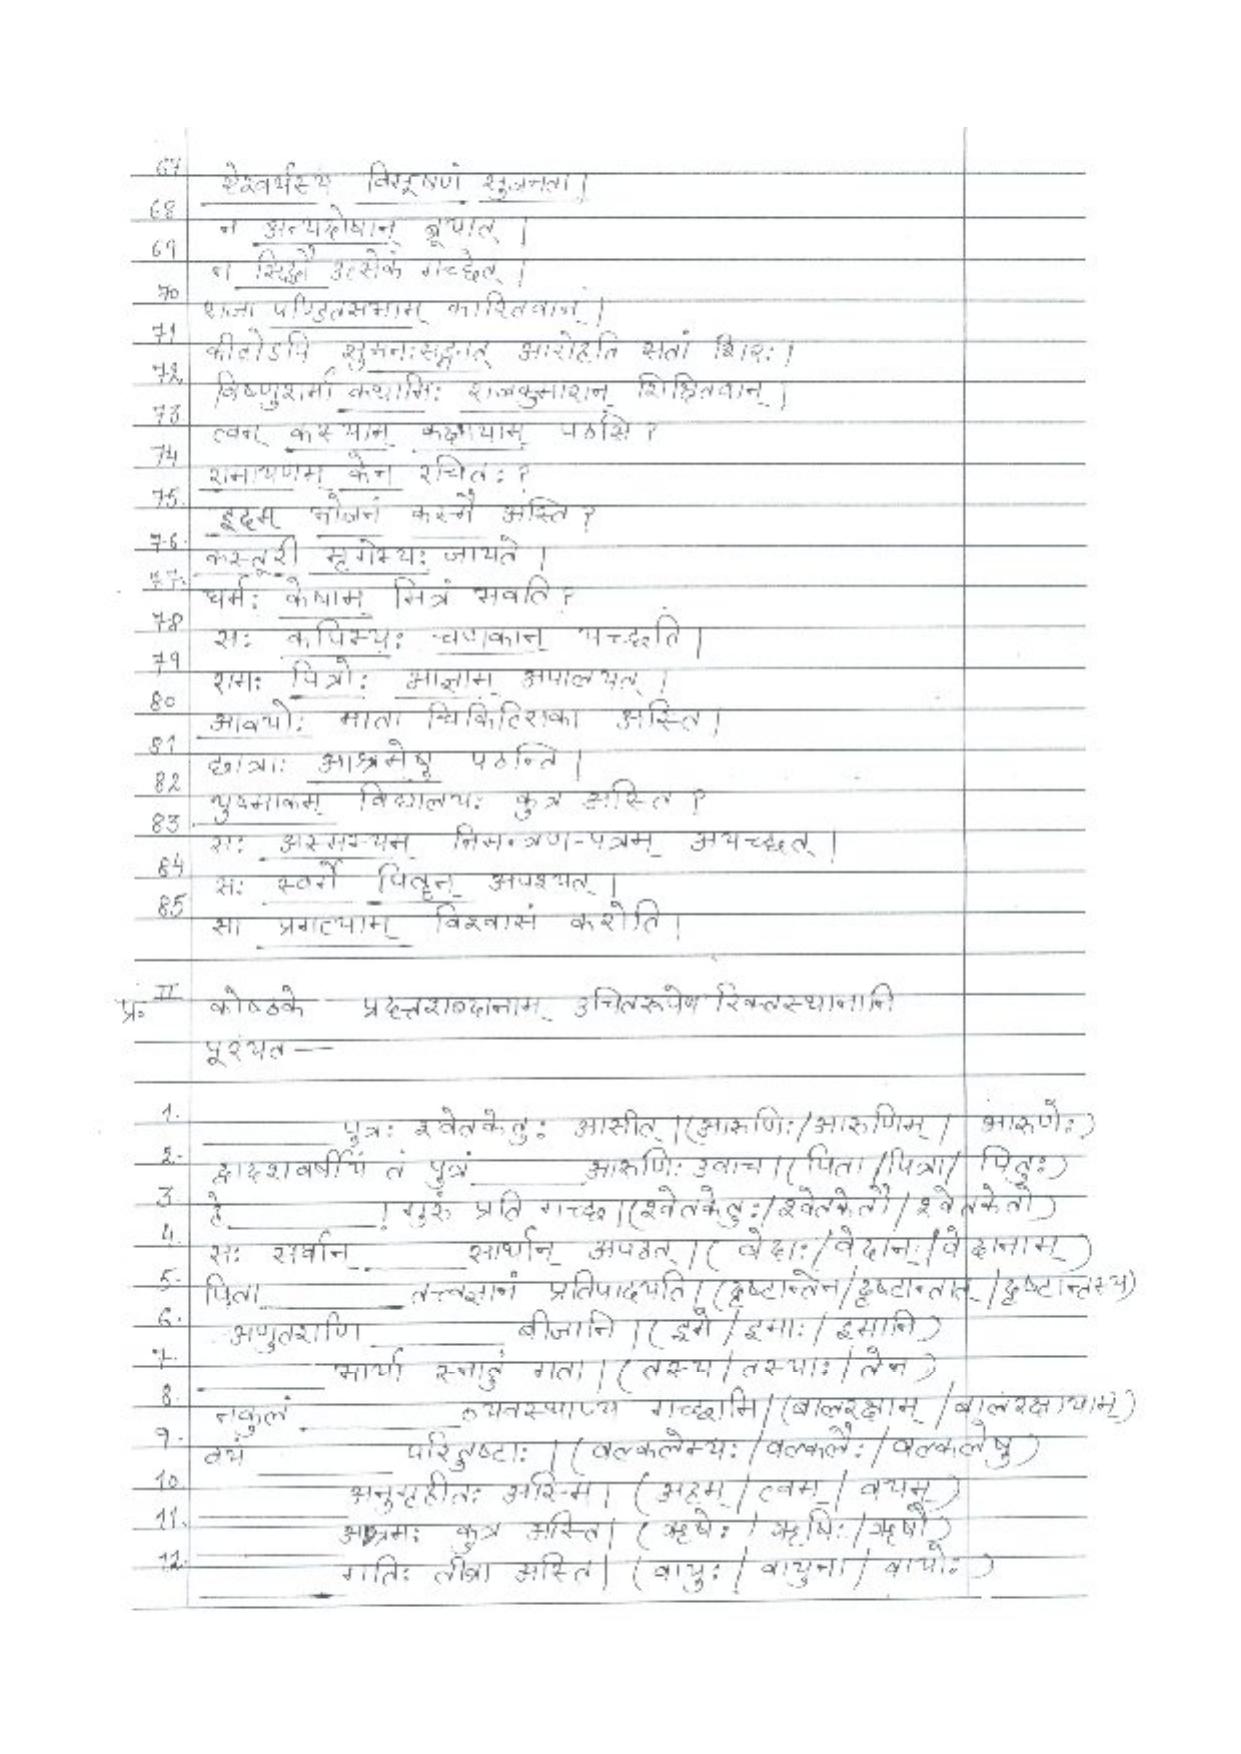 67 ऐश्वर्यस्य विभूषणं सुजनता।
68 न अन्यदोषान् ब्रूयात्।
69 न सिद्धौ उत्सेकं गच्छेत्।
70 राजा पण्डितसभाम् कारितवान्।
71 कीटोऽपि सुमनःसङ्गात् आरोहति सतां शिरः।
72. विष्णुशर्मा कथाभिः राजकुमारान् शिक्षितवान्।
73 त्वम् कस्याम् कक्षायाम् पठसि?
74 रामायणम् केन रचितः?
75. इदम् भोजनं कस्मै अस्ति?
76. कस्तूरी मृगेभ्यः जायते।
77. धर्मः केषाम् मित्रं भवति?
78 सः कपिभ्यः चणकान् यच्छति।
79 रामः पित्रोः आज्ञाम् अपालयत्।
80 आवयोः माता चिकित्सिका अस्ति।
81 छात्राः आश्रमेषु पठन्ति।
82 युष्माकम् विद्यालयः कुत्र अस्ति?
83. सः अस्मभ्यम् निमन्त्रण-पत्रम् अयच्छत्।
84 सः स्वर्गे पितॄन् अपश्यत्।
85 सा प्रगत्याम् विश्वासं करोति।
प्र॰ II कोष्ठके प्रदत्तशब्दानाम् उचितरूपेण रिक्तस्थानानि
पूरयत —
1. ______ पुत्रः श्वेतकेतुः आसीत्।(आरुणिः/आरुणिम्/ आरुणेः)
2. द्वादशवर्षीयं तं पुत्रं ______ आरुणिः उवाच।(पिता/पित्रा/ पितुः)
3. हे ______! गुरुं प्रति गच्छ।(श्वेतकेतुः/श्वेतकेतौ/श्वेतकेतो)
4. सः सर्वान् ______ सार्थान् अपठत्।(वेदाः/वेदान्ः/वेदानाम्)
5. पिता ______ तत्त्वज्ञानं प्रतिपादयति।(दृष्टान्तेन/दृष्टान्तात्/दृष्टान्तस्य)
6. अणुतराणि ______ बीजानि।(इमे/इमाः/इमानि)
7. ______ भार्या स्नातुं गता।(तस्य/तस्याः/तेन)
8. नकुलं ______ व्यवस्थाप्य गच्छामि।(बालरक्षाम्/बालरक्षायाम्)
9. वयं ______ परितुष्टाः।(वल्कलेभ्यः/वल्कलैः/वल्कलेषु)
10. ______ अनुगृहीतः अस्मि।(अहम्/त्वम्/वयम्)
11. ______ आश्रमः कुत्र अस्ति।(ऋषेः/ऋषिः/ऋषौ)
12. ______ गतिः तीव्रा अस्ति।(वायुः/वायुना/वायोः)